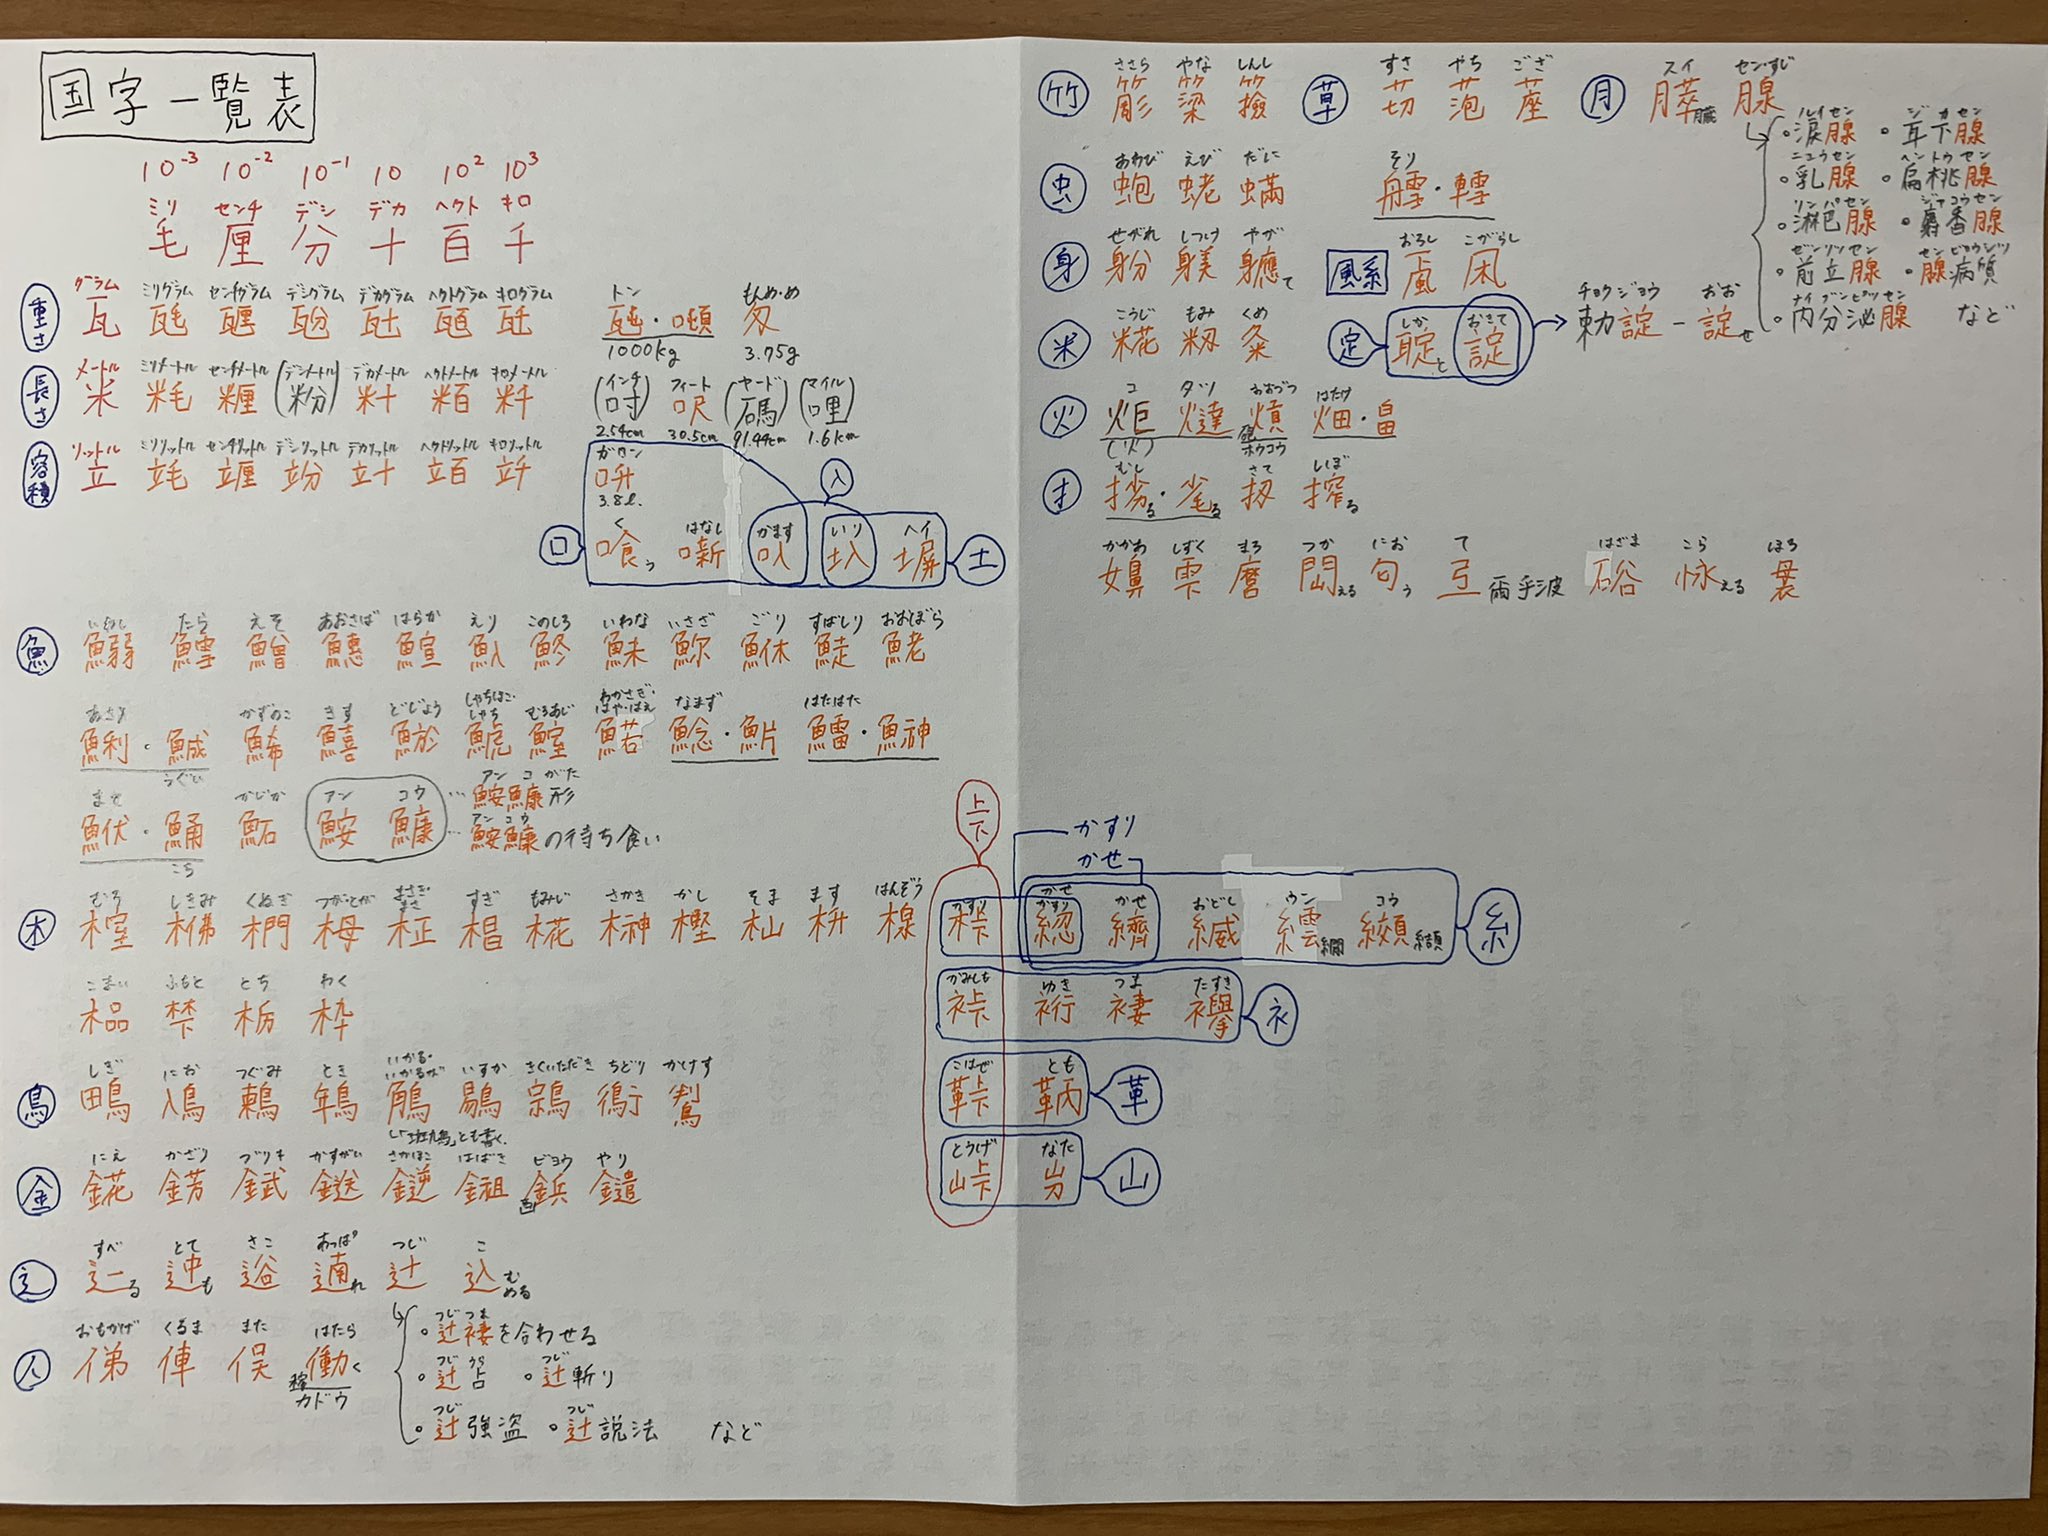 国字一覧表
10⁻³ 10⁻² 10⁻¹ 10 10² 10³
ミリ センチ デシ デカ ヘクト キロ
毛 厘 分 十 百 千
重さ
グラム ミリグラム センチグラム デシグラム デカグラム ヘクトグラム キログラム トン もんめ・め
瓦 瓱 甅 瓰 瓧 瓸 瓩 瓲・噸 匁
1000kg 3.75g
長さ
メートル ミリメートル センチメートル デシメートル デカメートル ヘクトメートル キロメートル インチ フィート ヤード マイル
米 粍 糎 (粉) 籵 粨 粁 (吋) 呎 (碼) (哩)
2.54cm 30.5cm 91.44cm 1.6km
容積
リットル ミリリットル センチリットル デシリットル デカリットル ヘクトリットル キロリットル
立 竓 竰 竕 竍 竡 竏
ガロン
呏
3.8ℓ.
入
く はなし かます いり ヘイ
口 喰う 噺 叺 圦 塀 土
いわし たら えそ あおさば はらか えり このしろ いわな いさざ ごり すばしり おおぼら
魚 鰯 鱈 鱛 鱪 鰚 魞 鮗 鮇 鮴 鯐 鮱
あさり かずのこ きす どじょう しゃちほこ・しゃち むろあじ わかさぎ・はや・はえ なまず はたはた
鯏・鯎 鯑 鱚 鯲 鯱 鰘 鰙 鯰・魸 鱩・鰰
うぐい
まて かじか アン コウ アン コ がた
鮲・鯒 鮖 鮟 鱇 … 鮟鱇形
アン コウ
… 鮟鱇の待ち食い
こち
むろ しきみ くぬぎ つが・とが まさき・まさ すぎ もみじ さかき かし そま ます はんぞう
木 榁 梻 椚 栂 柾 椙 椛 榊 樫 杣 枡 楾
こまい ふもと とち わく
榀 梺 栃 枠
しぎ にお つぐみ とき いかる・いかるが いすか きくいただき ちどり かけす
鳥 鴫 鳰 鶫 鵇 鵤 鶍 鶎 鵆 鵥
「斑鳩」とも書く.
にえ かざり ブリキ かすがい さかほこ はばき ビョウ やり
金 錵 錺 錻 鎹 鎺 鋲 鑓
すべ とて さこ あっぱ つじ こ
辷る 迚も 逧 遖れ 辻 込 むめる
おもかげ くるま また はたら
人 俤 俥 俣 働く
稼 カドウ
つじつま
。辻褄を合わせる
つじ うら つじ
。辻占 。辻斬り
つじ つじ
。辻強盗 。辻説法 など
ささら やな しんし すさ やち ござ スイ セン・すじ
竹 簓 簗 草 苆 萢 蓙 月 膵臓 腺
ルイセン ジカセン
。涙腺 。耳下腺
ニュウセン ヘントウセン
。乳腺 。扁桃腺
リンパセン ジャコウセン
。淋巴腺 。麝香腺
ゼンリツセン センビョウシツ
。前立腺 ・腺病質
ナイブンピツセン
。内分泌腺 など
あわび えび だに そり
虫 蚫 蛯 蟎 艝・轌
せがれ しつけ やが おろし こがらし
身 躮 躾 軈て 風系 颪 凩
こうじ もみ くめ しか おきて チョクジョウ おお
米 糀 籾 粂 定 聢と 諚 → 勅諚 ― 諚せ
コ タツ おおづつ はたけ
火 炬 燵 熕 畑・畠
(火) 砲 ホウコウ
むし さて しぼ
扌 挘る・毟る 扨 搾る
かかあ しずく まろ つか にお て はざま こら ほろ
嬶 雫 麿 閊える 匂う 弖 爾乎波 硲 怺える 袰
上下
かすり
かせ
かすり かせ かすり かせ おどし ウン コウ
桛 綛 纃 縅 繧繝 纐纈 糸
かみしも ゆき つま たすき
裃 裄 褄 襷 衤
こはぜ とも
鞐 鞆 革
とうげ なた
峠 岃 山